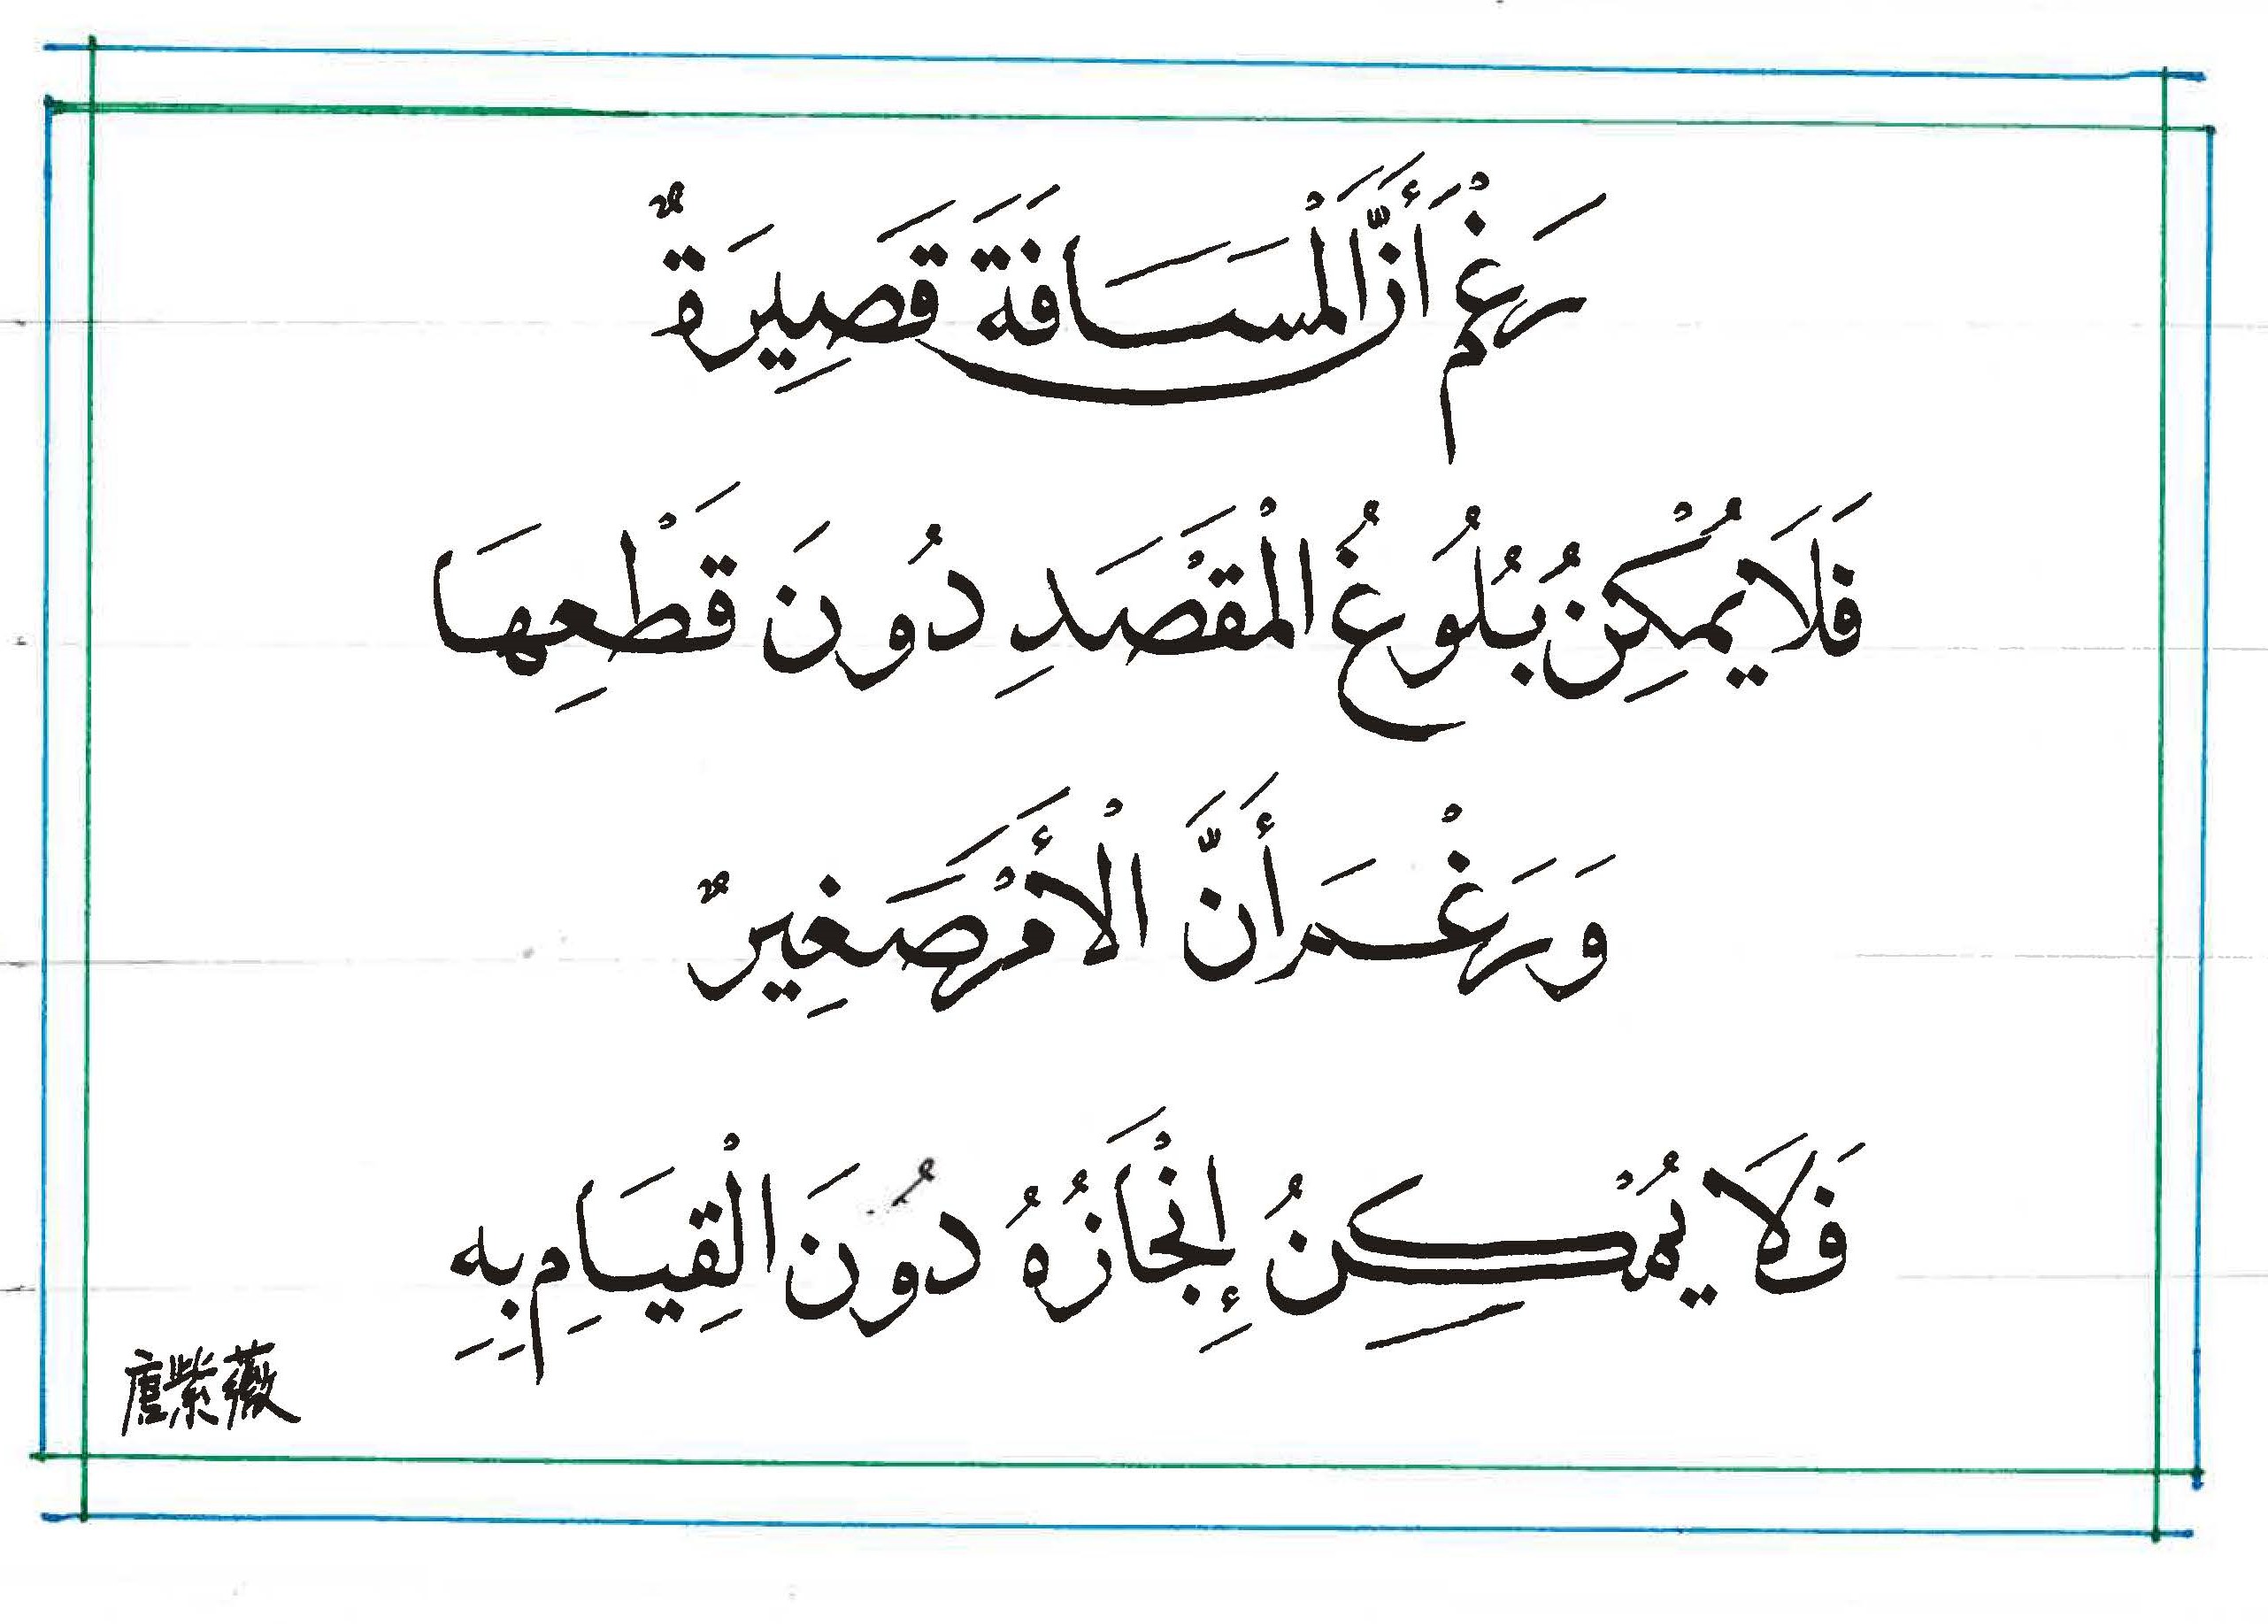 رَغْمَ أَنَّ الْمَسَافَةَ قَصِيرَةٌ
فَلَا يُمْكِنُ بُلُوغُ الْمَقْصَدِ دُونَ قَطْعِهَا
وَرَغْمَ أَنَّ الْأَمْرَ صَغِيرٌ
فَلَا يُمْكِنُ إِنْجَازُهُ دُونَ الْقِيَامِ بِهِ
唐紫薇